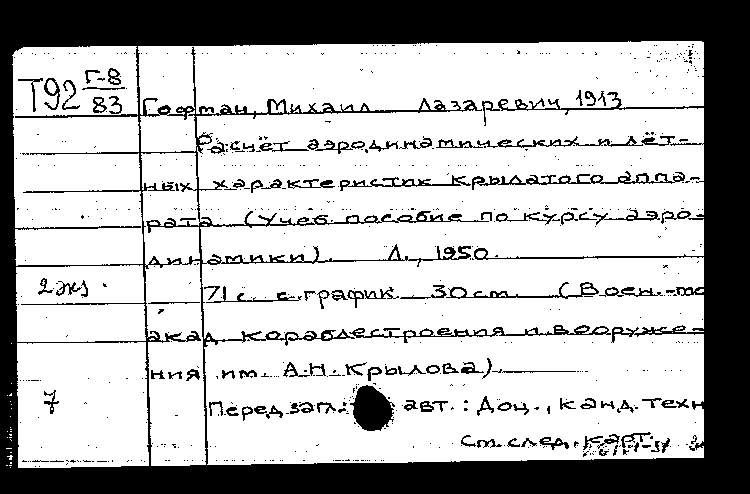 Т92 Г-8
83 Гофман, Михаил Лазаревич, 1913
Расчёт аэродинамических и лёт-
ных характеристик крылатого аппа-
рата (Учеб. пособие по курсу аэро-
динамики). Л., 1950.
2 экз. 71 с. с график. 30 см. (Воен.-мо
акад. кораблестроения и вооруже-
ния им. А.Н. Крылова)
7 Перед загл.: авт.: Доц., канд. техн
См. след. карт.